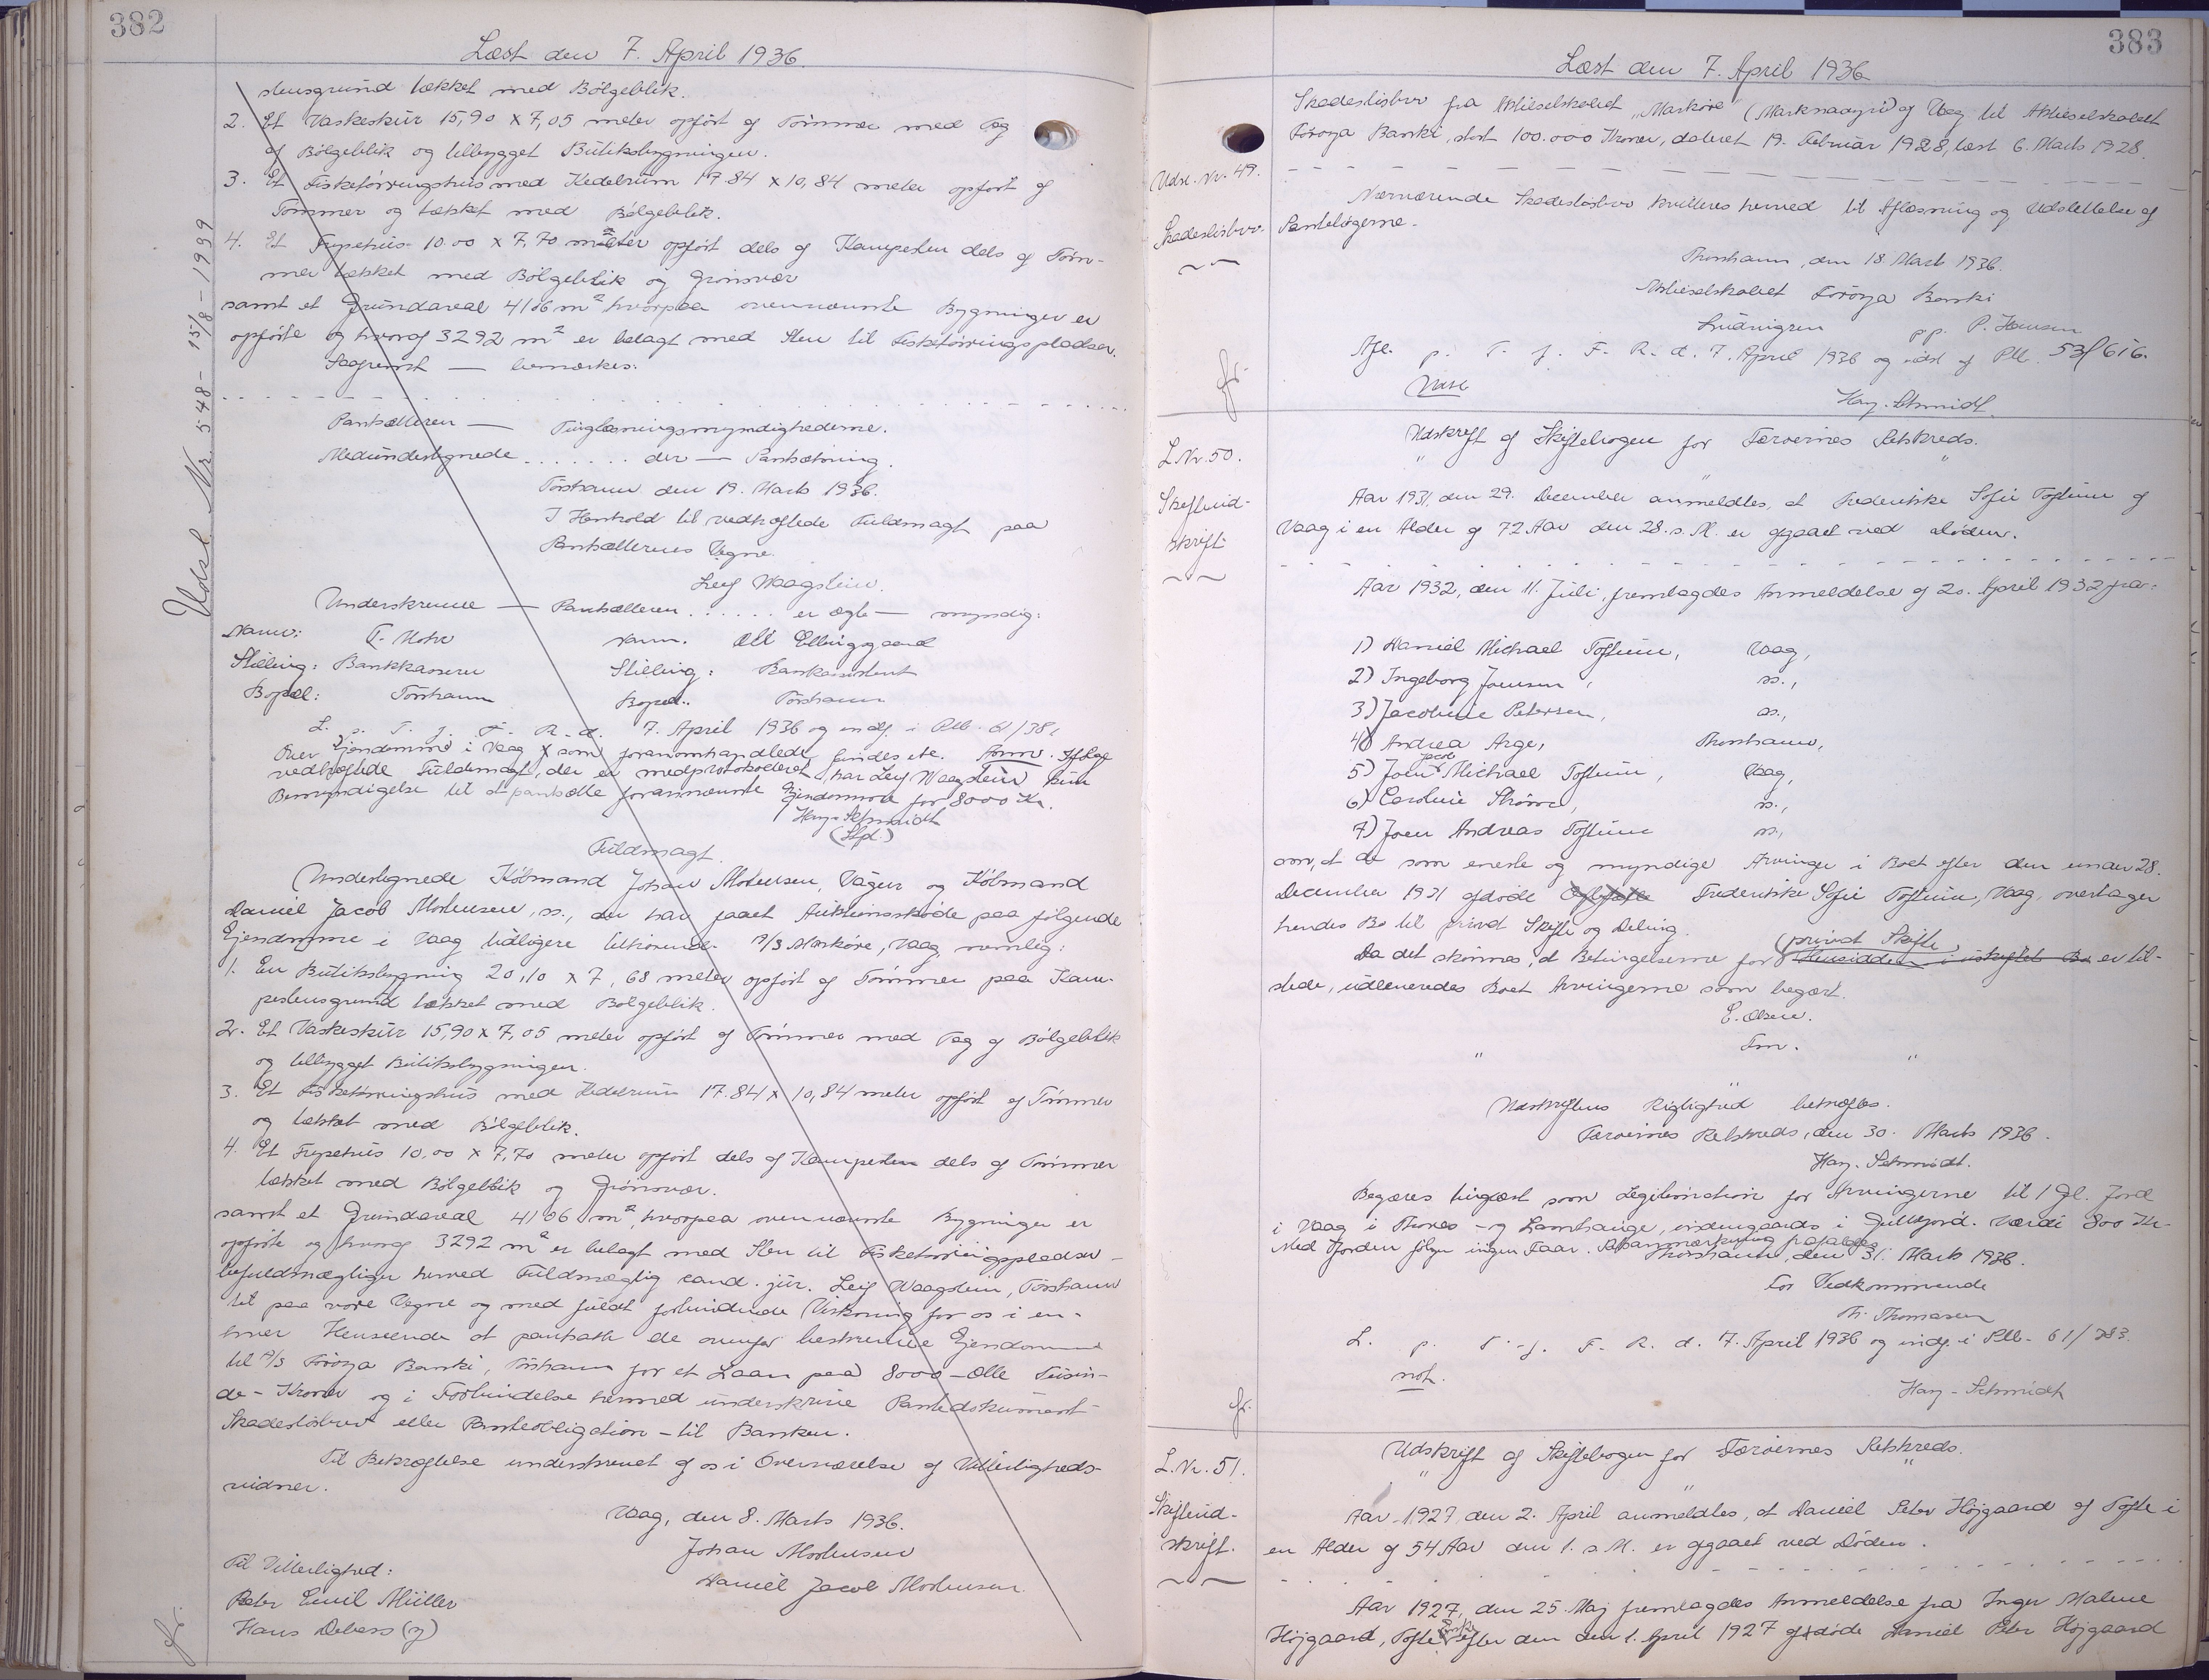 382
Læst den 7. April 1936.
Udsl. Nr. 548 - 15/8 - 1939
stensgrund tækket med Bölgeblik.
2. Et Vaskeskúr 15,90 x 7,05 meter opfört af Tömmer med Tag
af Bölgeblik og tilbygget Bútiksbygningen.
3. Et Fisketörringshús med Kedelrúm 17.84 x 10,84 meter opfört af
Tömmer og tækket med Bölgeblik.
4. Et Frysehús 10.00 x 7,70 meter opfört dels af Kampesten dels af Töm-
mer tækket med Bölgeblik og Grönsvær
samt et Grúndareal 4106 m² hvorpaa ovennævnte Bygninger er
opförte og hvoraf 3292 m² er belagt med Sten til Fisketörringspladser.
Sagfremt — bemærkes:
Pantsætteren — Tinglæsningsmyndighederne.
Medúndertegnede . . . . . . . der — Pantsætning.
Torshavn den 19. Marts 1936.
I Henhold til vedhæftede Fúldmagt paa
Pantsætterens Vegne.
Leif Waagstein.
Underskrevne — Pantsætteren . . . . . . er ægte — myndig:
Navn: F. Mohr Navn. Ole Ellingsgaard
Stilling: Bankkasserer Stilling: Bankassistent
Bopæl: Torshavn Bopæl: Torshavn
L. p. T. f. F. R. d. 7. April 1936 og indf. i Ptb. 61/381
Over Ejendomme i Vaag som foranomhandlede findes ikke. Anm. Ifölge
vedhæftede Fúldmagt, der er medprotokolleret, har Leif Waagstein kún
Bemyndigelse til at pantsætte forannævnte Ejendomme for 8000 Kr.
Hay-Schmidt
(Stpl.)
Fúldmagt.
Undertegnede Köbmand Johan Mortensen, Vágur og Köbmand
Daniel Jacob Mortensen, ss., der har faaet Aúktionsskøde paa følgende
Ejendomme i Vaag tidligere tilhörende A/S Marköre, Vaag, nemlig:
1. En Bútiksbygning 20,10 x 7,68 meter opfört af Tömmer paa Kam-
pestensgrund tækket med Bölgeblik.
2. Et Vaskeskúr 15,90 x 7,05 meter opfört af Tömmer med Tag af Bölgeblik
og tilbygget Bútiksbygningen.
3. Et Fisketörringshús med Kedelrúm 17.84 x 10,84 meter opfört af Tömmer
og tækket med Bölgeblik.
4. Et Frysehús 10.00 x 7,70 meter opfört dels af Kampesten dels af Tömmer
tækket med Bölgeblik og Grönsvær.
samt et Grúndareal 4106 m², hvorpaa ovennævnte Bygninger er
opförte og hvoraf 3292 m² er belagt med Sten til Fisketörringspladser -
befúldmægtiger herved Fúldmægtig cand. júr. Leif Waagstein, Torshavn
til paa vore Vegne og med fúldt forbindende Virkning for os i en-
hver Henseende at pantsætte de ovenfor beskrevne Ejendomme
til A/S Föroya Banki, Torshavn for et Laan paa 8000 - Otte Túsin-
de - Kroner og i Forbindelse hermed únderskrive Pantedokúment -
Skadeslösbrev eller Panteobligation - til Banken.
Til Bekræftelse únderskrevet af os i Overværelse af Vitterligheds-
vidner.
Vaag, den 8. Marts 1936.
Johan Mortensen
Daniel Jacob Mortensen.
Til Vitterlighed:
Peter Emil Müller
Hans Debess (y)
383
Læst den 7. April 1936
Skadeslösbrev fra Aktieselskabet "Marköre" (Marknaoyri) af Vaag til Aktieselskabet
Föroya Banki, stort 100.000 Kroner, dateret 19. Febrúar 1928, læst 6. Marts 1928.
Udsl. Nr. 49.
Skadeslösbrev.
Nærværende Skadeslösbrev kvitteres herved til Aflæsning og Udslettelse af
Pantebögerne.
Thorshavn, den 18. Marts 1936.
Aktieselskabet Föroya Banki
pp. P. Hansen
Afl. p. T. f. F. R. d. 7. April 1936 og udsl af Ptb. 53/616.
Udsl.
Hay-Schmidt.
L. Nr. 50.
Skifteúd-
skrift
Udskrift af Skiftebogen for Færöernes Retskreds.
Aar 1931, den 29. December anmeldtes, at Frederikke Sofie Toftum af
Vaag i en Alder af 72 Aar den 28. s. M. er afgaaet ved Döden.
Aar 1932, den 11. Júli, fremlagdes Anmeldelse af 20. April 1932 fra:
1) Daniel Michael Toftum, Vaag,
2) Ingeborg Joensen, ss.,
3) Jacobine Petersen, ss.,
4) Andrea Arge, Thorshavn,
5) Joen Jacob Michael Toftum, Vaag,
6) Caroline Strömø, ss.,
7) Joen Andreas Toftum ss,
om, at de som eneste og myndige Arvinger i Boet efter den únder 28.
December 1931 afdöde Frederikke Sofie Toftum, Vaag, overtager
hendes Bo til privat Skifte og Deling.
Da det skönnes, at Betingelserne for (privat Skifte) Hensidden i úskiftet Bo er til-
stede, údleveredes Boet Arvingerne som begært.
E. Olsen.
Fm.
Udskriftens Rigtighed bekræftes.
Færöernes Retskreds, den 30. Marts 1936.
Hay-Schmidt.
Begæres tinglæst som Legitimation for Arvingerne til 1 Gl. Jord
i Vaag i Thoves- og Lamhauge, indengaards i Gullfjord. Værdi 800 Kr.
Med Jorden fölger ingen Faar. Thorshavn, den 31. Marts 1936.
For Vedkommende
Th. Thomasen
L. p. T. f. F. R. d. 7. April 1936 og indf. i Ptb. 61/383.
not.
Hay-Schmidt
L. Nr. 51.
Skifteúd-
skrift.
Udskrift af Skiftebogen for Færöernes Retskreds.
Aar 1927, den 2. April anmeldtes, at Daniel Peter Höjgaard af Tofte i
en Alder af 54 Aar den 1. s. M. er afgaaet ved Döden.
Aar 1927, den 25. Maj fremlagdes Anmeldelse fra Inger Malene
Höjgaard, Tofte, Enke efter den den 1. April 1927 afdöde Daniel Peter Höjgaard